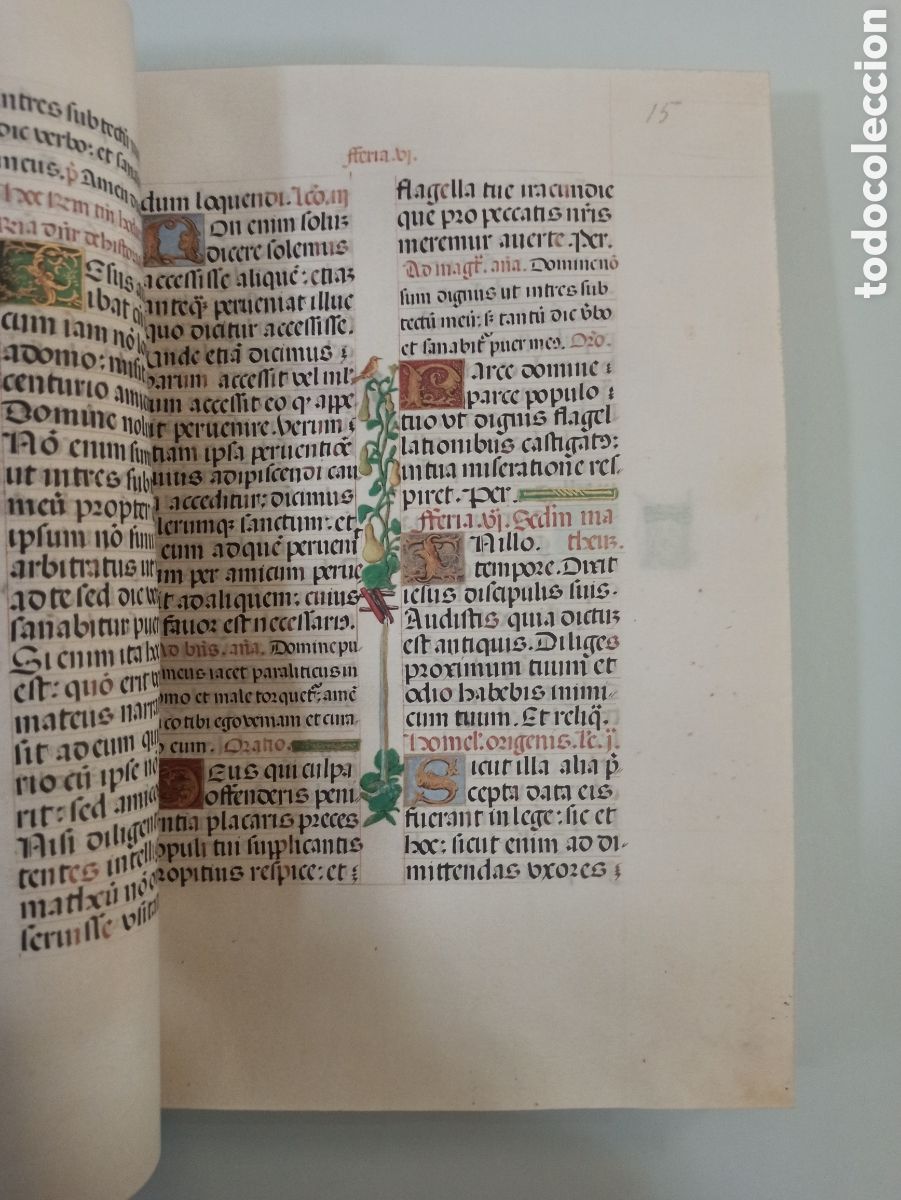 intres sub tectū
die verbo: et sana
meus. p̄ Amen di
Esus a
ibat cū
cum iam nō lo
a domo: misit
centurio amic
Domine noli
Nō enim sum
ut intres sub
meū propter
ipsum nō sum
arbitratus ut
ad te sed dic ve
sanabitur puer
Si enim ita hoc
est: quō erit v
mateus narra
sit ad eum qu
rio cū ipse nō
rit: sed amic
Nisi diligen
tentes intelli
matheū nō o
seruisse visita
15
fferia. vj.
dum loquendi. Leō. iij
Non enim soluȝ
dicere solemus
accessisse aliquē: etiaȝ
anteqȝ perueniat illuc
quo dicitur accessisse.
unde etiā dicimus ;
harum accessit vel imb
um accessit eo q' appe
it peruenire. Verum ;
tiam ipsa peruenticē
uius adipiscendi cau
a acceditur: dicimus
lerumqȝ sanctum: et
cum ad quē peruenit
im per amicum perue
it ad aliquem: cuius
fauor est necessariȝ.
Ad bn̄s. an̄a. Domine pu
meus iacet paraliticus in
omo et male torquet᷑. amē
ico tibi ego veniam et cura
o eum. Oratio.
Deus qui culpa
offenderis peni
ntia placaris preces
opuli tui supplicantis
ropitius respice: et ;
flagella tue iracundie
que pro peccatis nr̄is
meremur auerte. Per.
Ad mag᷑t. an̄a. Domine nō
sum dignus ut intres sub
tectū meū: s; tantū dic v̄bo
et sanabit᷑ puer meȝ. Orō.
Parce domine ;
parce populo ;
tuo vt dignis flagel
lationibus castigatȝ:
in tua miseratione res-
piret. Per.
fferia. vj. Sed̄m ma
IN illo. theuȝ.
tempore. Dixit
iesus discipulis suis.
Audistis quia dictuȝ
est antiquis. Diliges
proximum tuum et
odio habebis inimi-
cum tuum. Et reliq̄.
homel. origenis. lc. j.
Sicut illa alia p̄
cepta data eis
fuerant in lege: sic et
hoc: sicut enim ad di-
mittendas vxores ;
todocoleccion